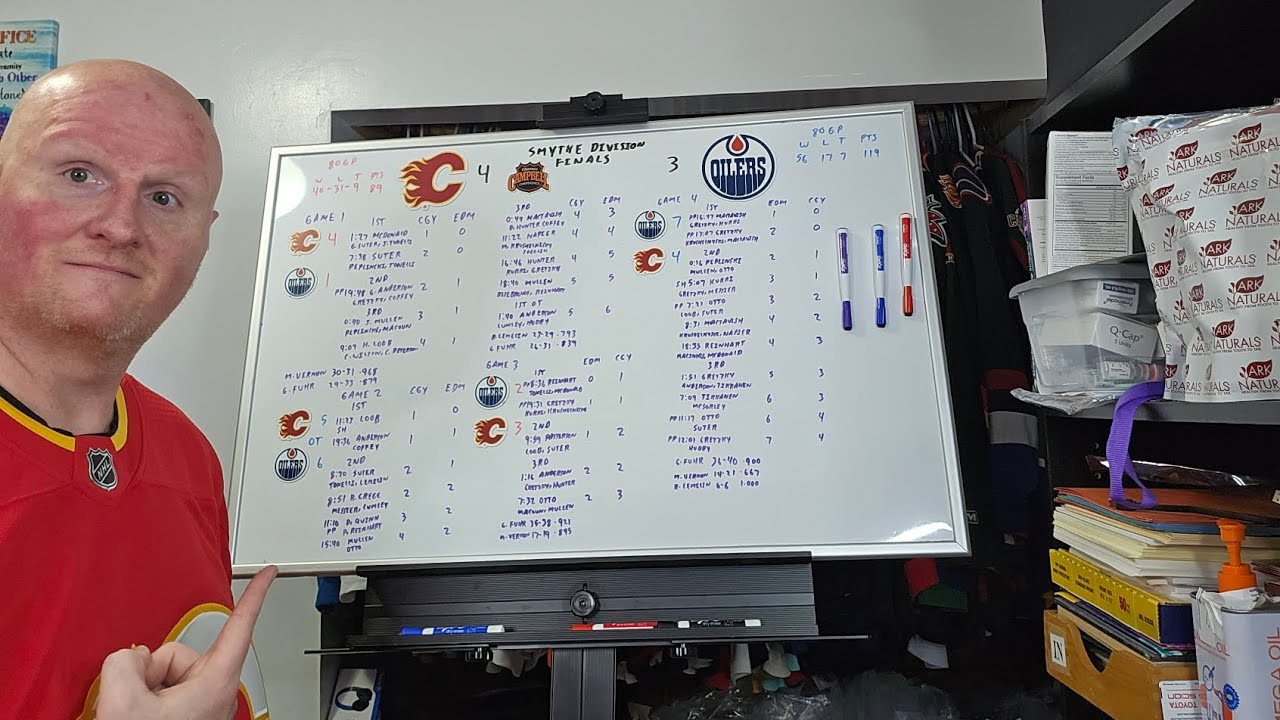 FICE
SMYTHE DIVISION
FINALS
CAMPBELL
4
3
80GP
W L T PTS
40-31-9
OILERS
80GP
W L T PTS
56 17 7 119
GAME 1 1ST CGY EDM
4 1:27 MCDONALD 1 0
G. SUTER, J. TONELLI
7:38 SUTER 2 0
PEPLINSKI, TONELLI
OILERS 1
2ND
PP19:48 G. ANDERSON 2 1
GRETZKY, COFFEY
3RD
0:40 J. MULLEN 3 1
PEPLINSKI, MACOUN
9:09 H. LOOB 4 1
C. WILSON, C. PETERSON
M. VERNON 30-31 .968
G. FUHR 29-33 .879
GAME 2 CGY EDM
1ST
5 11:27 LOOB 1 0
SH
OT 19:36 ANDERSON 1 1
COFFEY
OILERS 6
2ND
8:20 SUTER 2 1
TONELLI, LEMELIN
8:51 R. GREGG 2 2
MESSIER, LUMLEY
11:10 D. QUINN 3 2
PP P. REINHART
15:40 MULLEN 4 2
OTTO
3RD CGY EDM
0:49 MACTAVISH 4 3
D. HUNTER, COFFEY
11:22 NAPIER 4 4
16:46 HUNTER 4 5
KURRI, GRETZKY
18:40 MULLEN 5 5
RISEBROUGH, REINHART
1ST OT
1:40 ANDERSON 5 6
LUMLEY, HUDDY
R. LEMELIN 23-29 .793
G. FUHR 26-31 .839
GAME 3 EDM CGY
1ST
OILERS 2 PP8:36 REINHART 0 1
TONELLI, MCDONALD
PP19:31 GRETZKY 1 1
KURRI, KRUSHELNYSKI
3 2ND
9:59 PATTERSON 1 2
LOOB, SUTER
3RD
1:16 ANDERSON 2 2
GRETZKY, HUNTER
7:32 OTTO 2 3
MACOUN, MULLEN
G. FUHR 35-38 .921
M. VERNON 17-19 .895
GAME 4
1ST EDM CGY
OILERS 7 PP16:47 MACTAVISH 1 0
GRETZKY, KURRI
PP17:07 GRETZKY 2 0
KRUSHELNYSKI, MACTAVISH
4 2ND
0:16 PEPLINSKI 2 1
MULLEN, OTTO
SH 5:07 KURRI 3 1
GRETZKY, MESSIER
PP 7:21 OTTO 3 2
LOOB, SUTER
8:31 MACTAVISH 4 2
KRUSHELNYSKI, NAPIER
18:33 REINHART 4 3
MACOUN, MCDONALD
3RD
1:51 GRETZKY 5 3
ANDERSON, TIKKANEN
7:09 TIKKANEN 6 3
MCSORLEY
PP11:17 OTTO 6 4
SUTER
PP 12:01 GRETZKY 7 4
HUDDY
G. FUHR 36-40 .900
M. VERNON 14-21 .667
R. LEMELIN 6-6 1.000
ARK
NATURALS
Q-Cap
IN
TOYOTA
OIL